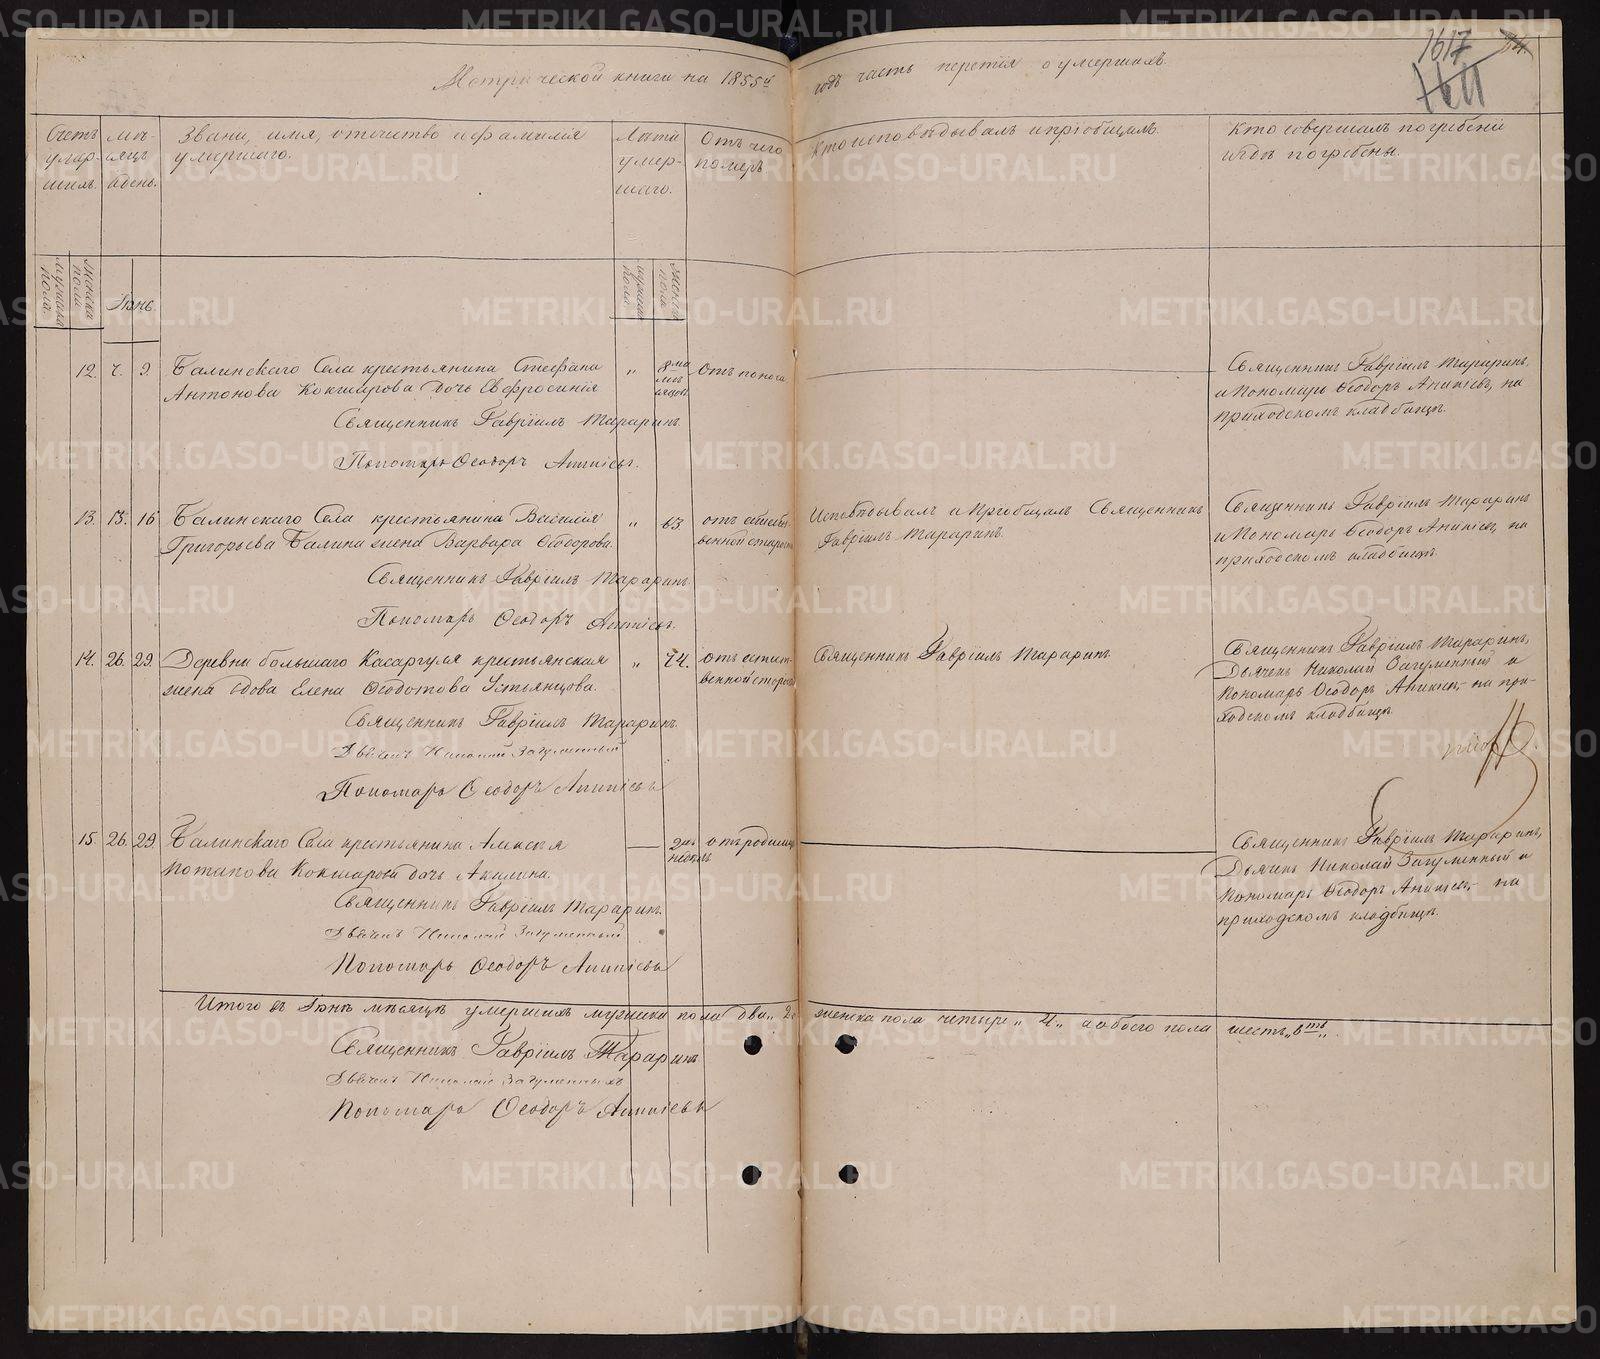 Метрической книги на 1855й годъ часть третія о умершихъ.
1617
Счетъ умершихъ.
Мѣсяцъ и день.
Званіе, имя, отечество и фамилія умершаго.
Лѣта умершаго.
Отъ чего померъ
Кто исповѣдывалъ и пріобщалъ.
Кто совершалъ погребеніе и гдѣ погребены.
мужеска пола.
женска пола
Іюнь.
мужеска пола
женска пола
12. 7. 9. Балинскаго Села крестьянина Стефана „ 8ми мѣсяцовъ отъ поноса
Антонова Кокшарова дочь Евфросинія
Священникъ Гавріилъ Тараринъ.
и Пономарь Ѳеодоръ Аникіевъ, на
приходскомъ кладбищѣ.
Священникъ Гавріилъ Тараринъ.
Пономарь Ѳеодоръ Аникіевъ.
13. 13. 16 Балинскаго Села крестьянина Василія „ 63 отъ естественной старости
Григорьева Балина жена Варвара Ѳеодорова.
Исповѣдывалъ и Пріобщалъ Священникъ
Гавріилъ Тараринъ.
Священникъ Гавріилъ Тараринъ
и Пономарь Ѳеодоръ Аникіевъ, на
приходскомъ кладбищѣ.
Священникъ Гавріилъ Тараринъ.
Пономарь Ѳеодоръ Аникіевъ.
14. 26. 29. Деревни большаго Касаргуля крестьянская „ 74. отъ естественной старости
жена вдова Елена Ѳеодотова Устьянцова.
Священникъ Гавріилъ Тараринъ.
Священникъ Гавріилъ Тараринъ,
Дьячекъ Николай Загуменный и
Пономарь Ѳеодоръ Аникіевъ, на при-
ходскомъ кладбищѣ.
Священникъ Гавріилъ Тараринъ.
Дьячекъ Николай Загуменный
Пономарь Ѳеодоръ Аникіевъ
15. 26. 29 Балинскаго Села крестьянина Алексѣя — 2хъ недѣль отъ родимца
Потапова Кокшарова дочь Акилина.
Священникъ Гавріилъ Тараринъ,
Дьячекъ Николай Загуменный и
Пономарь Ѳеодоръ Аникіевъ, на
приходскомъ кладбищѣ.
Священникъ Гавріилъ Тараринъ.
Дьячекъ Николай Загуменный
Пономарь Ѳеодоръ Аникіевъ
Итого въ Іюнѣ мѣсяцѣ умершихъ мужеска пола два „ 2. женска пола четыре „ 4 „ а обоего пола шесть „ 6ть „.
Священникъ Гавріилъ Тараринъ
Дьячекъ Николай Загуменныхъ
Пономарь Ѳеодоръ Аникіевъ
METRIKI.GASO-URAL.RU